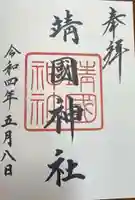 奉拝
靖國神社
令和四年五月八日
靖国神社